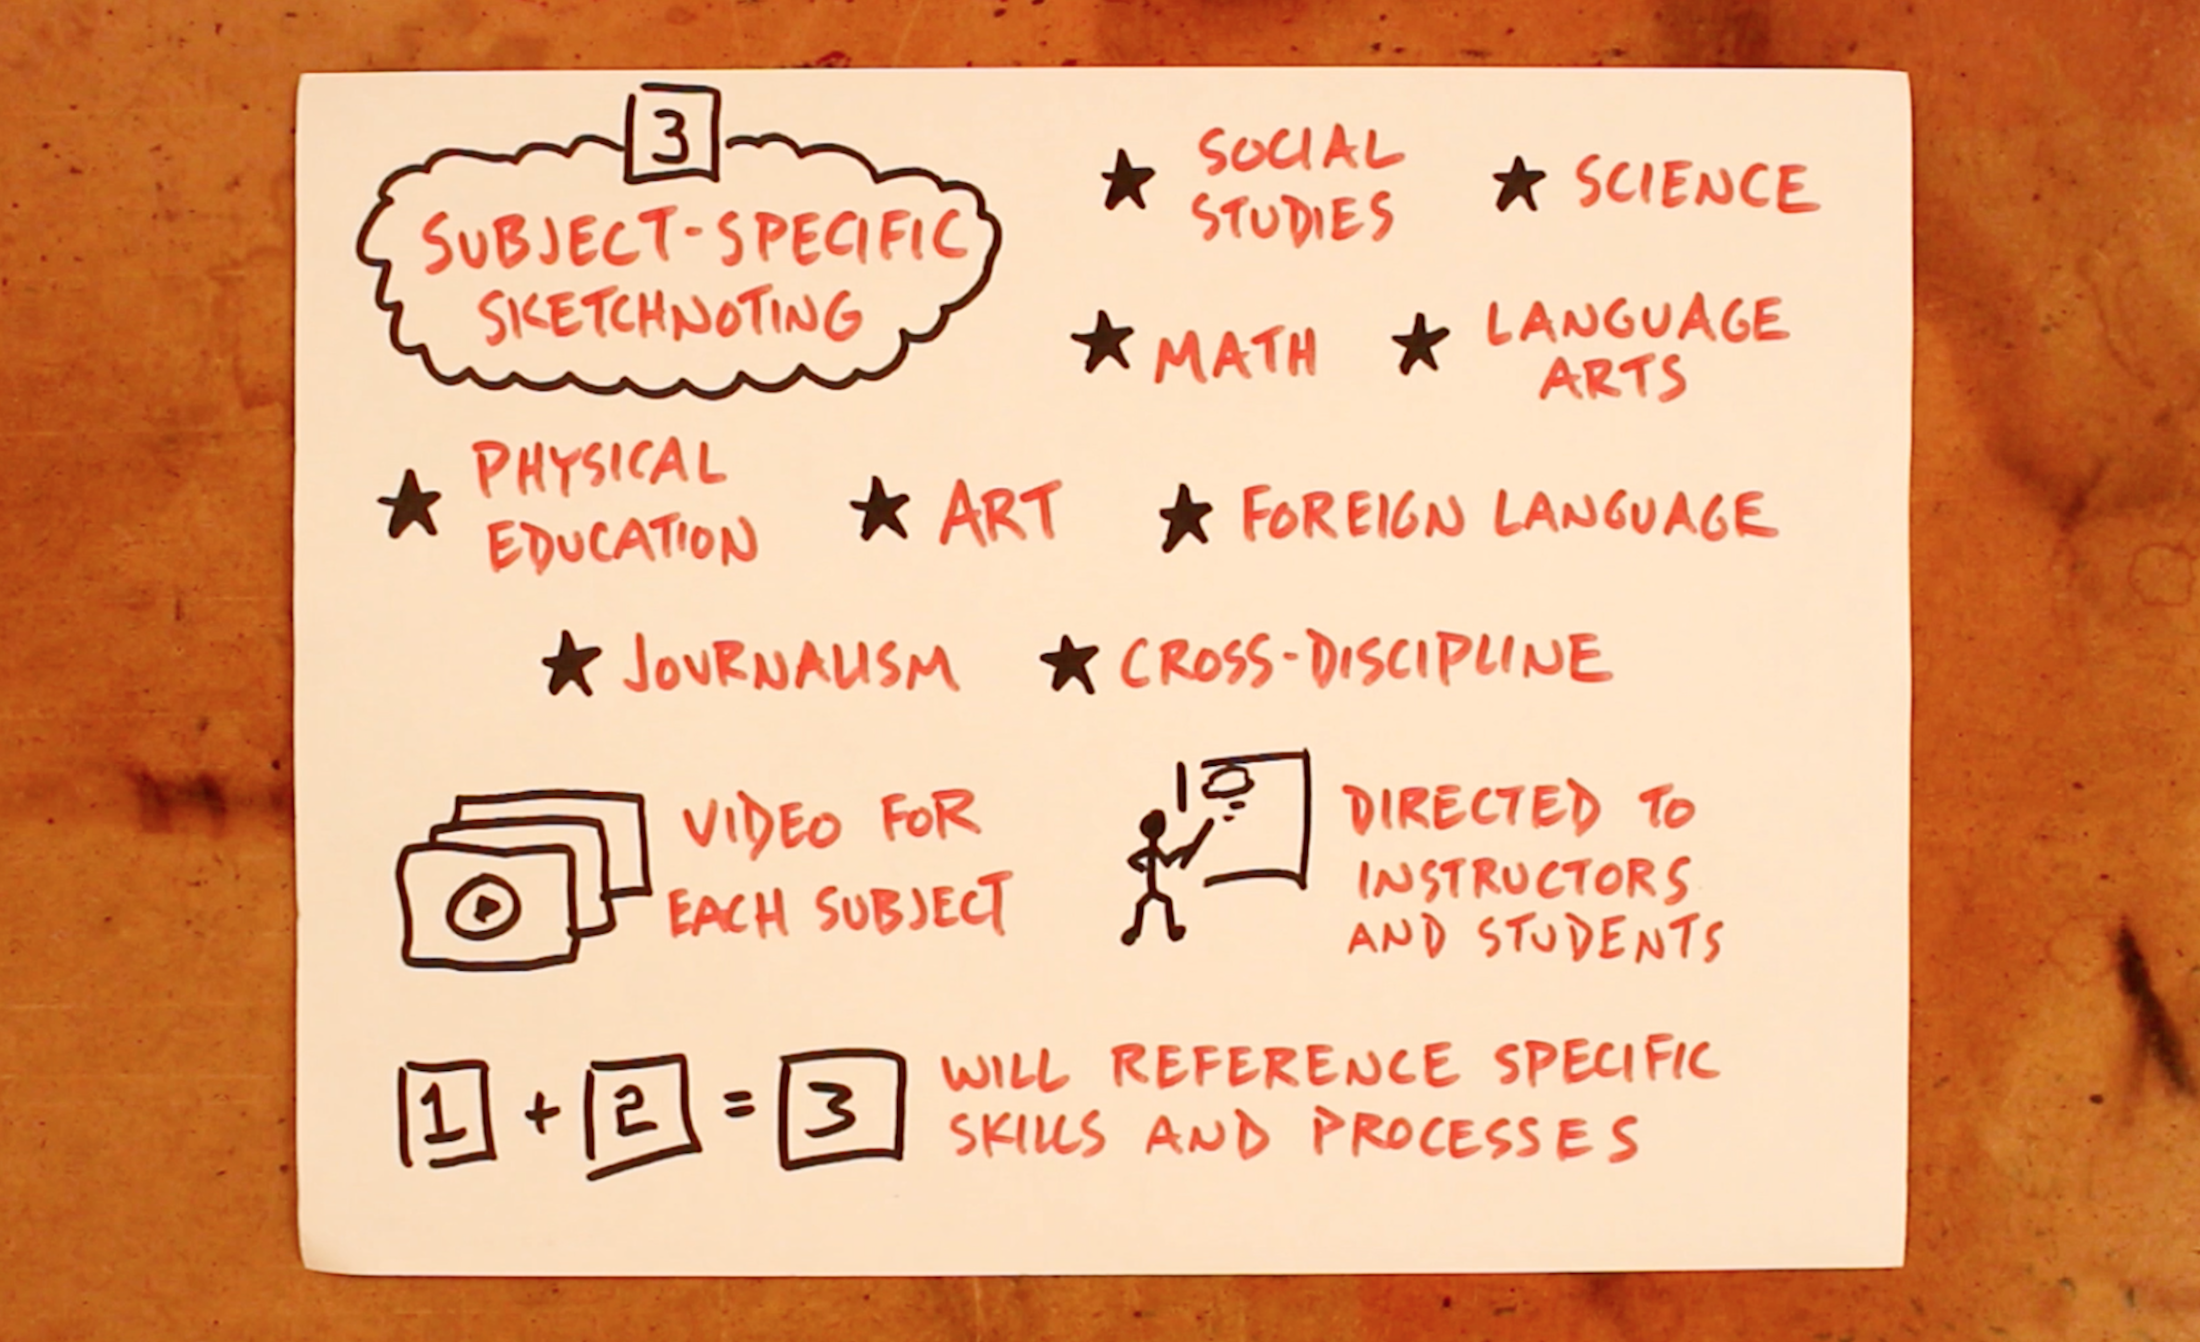 3
SUBJECT-SPECIFIC
SKETCHNOTING
SOCIAL
STUDIES
SCIENCE
MATH
LANGUAGE
ARTS
PHYSICAL
EDUCATION
ART
FOREIGN LANGUAGE
JOURNALISM
CROSS-DISCIPLINE
VIDEO FOR
EACH SUBJECT
DIRECTED TO
INSTRUCTORS
AND STUDENTS
1 + 2 = 3
WILL REFERENCE SPECIFIC
SKILLS AND PROCESSES